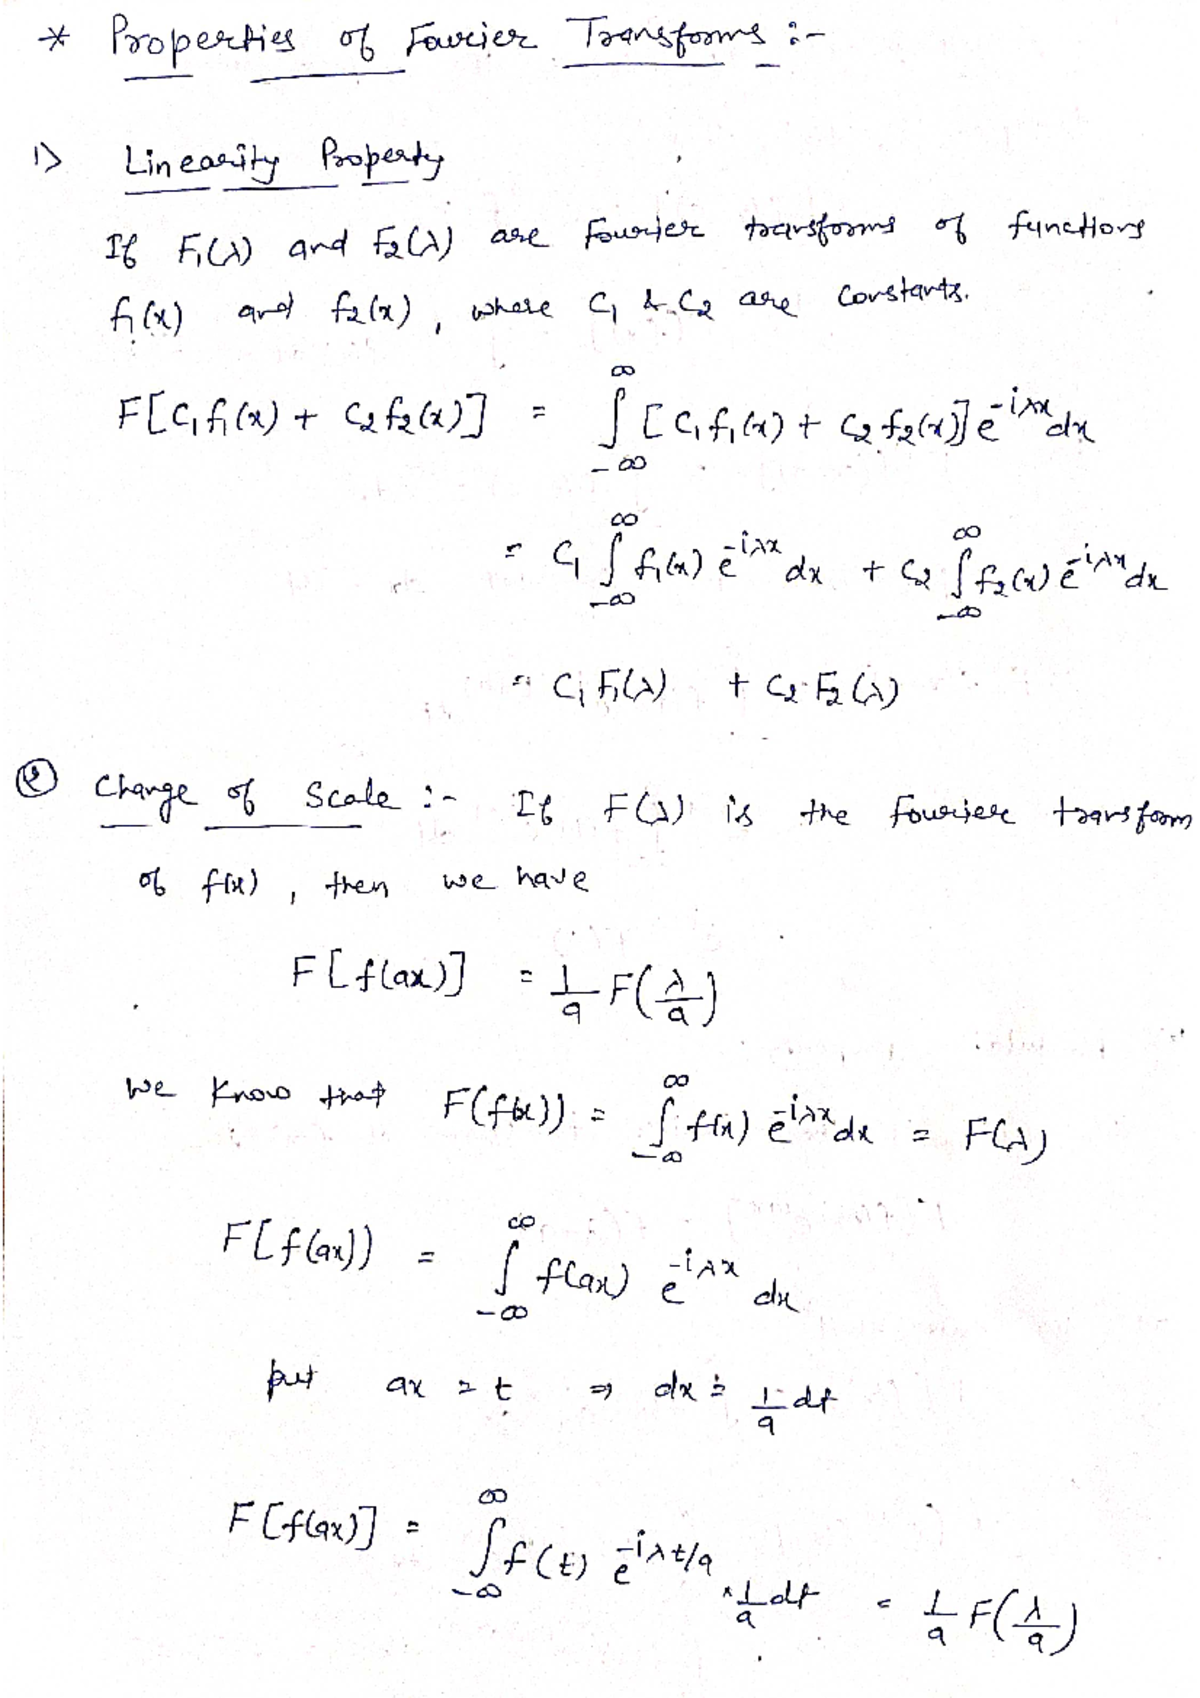 * Properties of Fourier Transforms :-
1) Linearity Property
If F₁(λ) and F₂(λ) are Fourier transforms of functions
f₁(x) and f₂(x), where C₁ & C₂ are constants.
F[C₁f₁(x) + C₂f₂(x)] = ∫_{-∞}^{∞} [C₁f₁(x) + C₂f₂(x)] e^{-iλx} dx
= C₁ ∫_{-∞}^{∞} f₁(x) e^{-iλx} dx + C₂ ∫_{-∞}^{∞} f₂(x) e^{-iλx} dx
= C₁ F₁(λ) + C₂ F₂(λ)
② Change of Scale :- If F(λ) is the Fourier transform
of f(x), then we have
F[f(ax)] = 1/a F(λ/a)
We know that F(f(x)) = ∫_{-∞}^{∞} f(x) e^{-iλx} dx = F(λ)
F[f(ax)) = ∫_{-∞}^{∞} f(ax) e^{-iλx} dx
put ax = t ⇒ dx = 1/a dt
F[f(ax)] = ∫_{-∞}^{∞} f(t) e^{-iλt/a} × 1/a dt = 1/a F(λ/a)